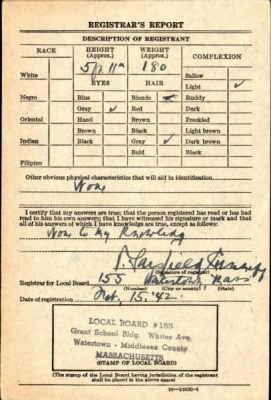 REGISTRAR'S REPORT
DESCRIPTION OF REGISTRANT
RACE HEIGHT (Approx.) WEIGHT (Approx.) COMPLEXION
5 ft 11 in 180
White EYES HAIR Sallow
Light ✓
Negro Blue Blonde Ruddy
Gray ✓ Red Dark
Oriental Hazel Brown Freckled
Brown Black Light brown
Indian Black Gray ✓ Dark brown
Bald Black
Filipino
Other obvious physical characteristics that will aid in identification
None
I certify that my answers are true; that the person registered has read or has had
read to him his own answers; that I have witnessed his signature or mark and that
all of his answers of which I have knowledge are true, except as follows:
None to my Knowledge
(Signature of registrar)
Registrar for Local Board 155 Watertown Mass
(Number) (City or county) (State)
Date of registration 15, '42
LOCAL BOARD #155
Grant School Bldg. Whites Ave.
Watertown - Middlesex County
MASSACHUSETTS
(STAMP OF LOCAL BOARD)
(The stamp of the Local Board having jurisdiction of the registrant
shall be placed in the above space.)